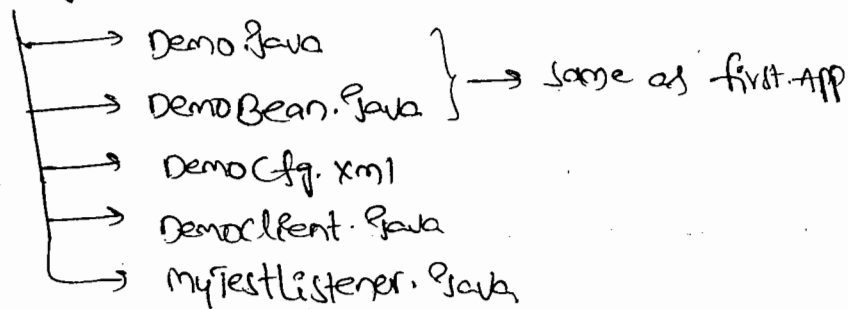 Demo.java
DemoBean.java
same as first App
DemoCfg.xml
DemoClient.java
MyTestListener.java